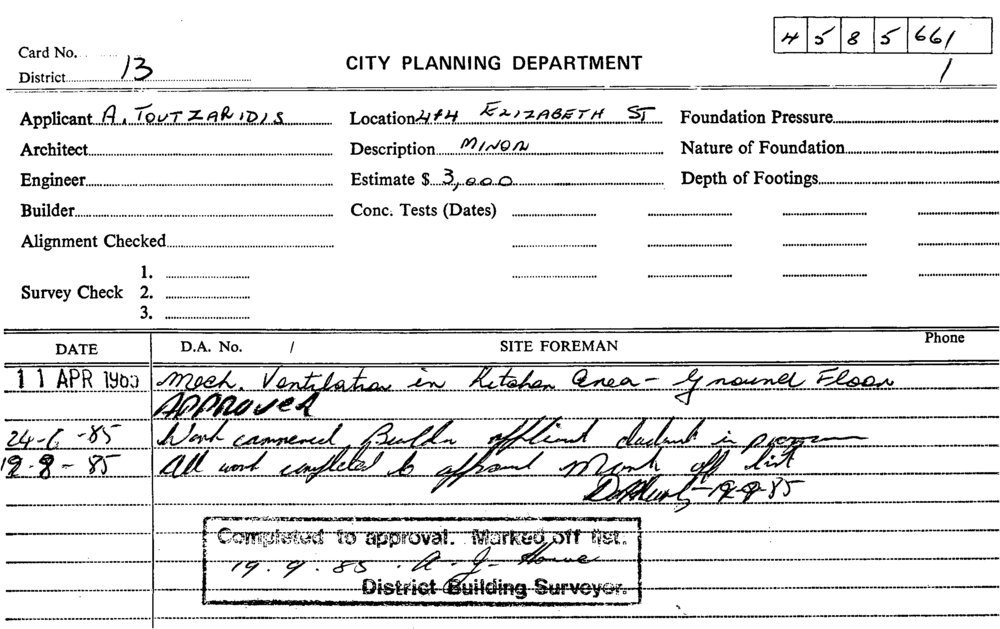 4 5 8 5 661
Card No.
CITY PLANNING DEPARTMENT
1
District 13
Applicant A. TOUTZARIDIS Location 444 ELIZABETH ST Foundation Pressure
Architect Description MINOR Nature of Foundation
Engineer Estimate $ 3,000 Depth of Footings
Builder Conc. Tests (Dates)
Alignment Checked
1.
Survey Check 2.
3.
DATE D.A. No. / SITE FOREMAN Phone
11 APR 1985 Mech. Ventilation in Kitchen Area - Ground Floor
APPROVED
24-6-85 Work commenced Builder in
19-8-85 All work completed to approval Mark off list
19-9-85
Completed to approval. Marked off list.
19.9.85 A. J. Howe
District Building Surveyor.